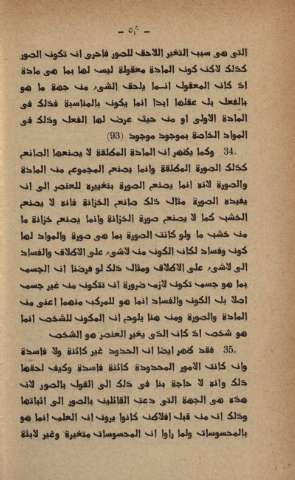 — ٥٤ —
التى هى سبب التغير اللاحق للصور فاحرى ان تكون الصور
كذلك لاكن كون المادة معقولة ليس لها بما هى مادة
اذ كانه المعقول انما يلحق الشىء منه جهة ما هو
بالفعل بل عقلها ابدا انما يكون بالمناسبة فذلك فى
المادة الاولى او منه حيث عرض لها الفعل وذلك فى
المواد الخاصة بموجود موجود (93)
34. وكما يظهر انه المادة المطلقة لا يصنعها الصانع
كذلك الصورة المطلقة وانما يصنع المجموع منه المادة
والصورة لانه انما يصنع الصورة بتغييره للعنصر الى انه
يفيده الصورة مثال ذلك صانع الخزانة فانه لا يصنع
الخشب كما لا يصنع صورة الخزانة وانما يصنع خزانة ما
منه خشب ما ولو كانت الصورة بما هى صورة والمواد لها
كونه وفساد لكانه الكونه منه لاشىء على الاطلاق والفساد
الى لاشىء على الاطلاق ومثال ذلك لو فرضنا انه الجسم
بما هو جسم تكونه لازمه ضرورة انه تتكونه منه غير جسم
اصلا بل الكونه والفساد انما هو للمركب منهما اعنى منه
المادة والصورة ومنه هنا يلوح انه المكونه للشخص انما
هو شخص اذ كانه الذى يغير العنصر هو الشخص
35. فقد ظهر ايضا انه الحدود غير كائنة ولا فاسدة
وانه كانت الامور المحدودة كائنة فاسدة وكيف لحقها
ذلك وانه لا حاجة بنا فى ذلك الى القول بالصور لانه
هذه هى الجهة التى دعت القائلين بالصور الى اثباتها
وذلك انه منه قبل افلاطونه كانوا يرونه انه العلم انما هو
بالمحسوسات ولما راوا انه المحسوسات متغيرة وغير لابثة